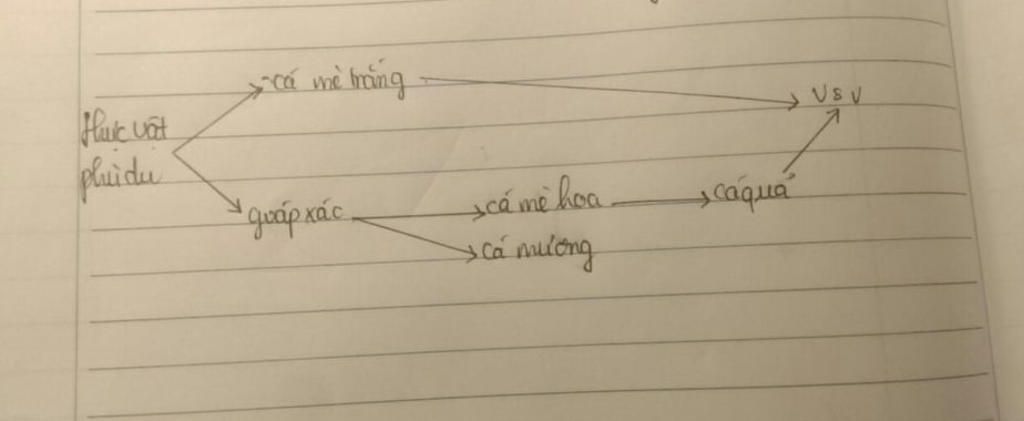 cá mè trắng
VSV
thực vật
phù du
gváp xác
cá mè hoa
cá quả
cá mương